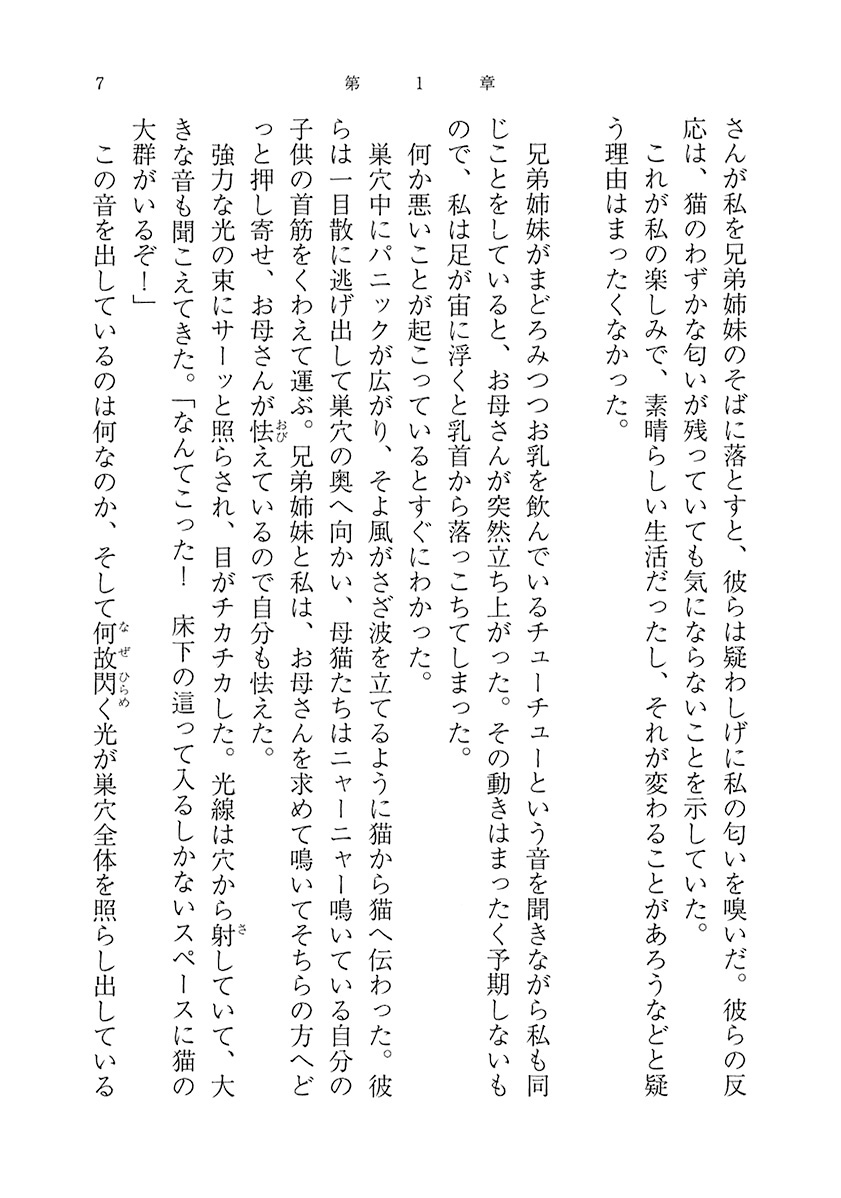 7
第1章
さんが私を兄弟姉妹のそばに落とすと、彼らは疑わしげに私の匂いを嗅いだ。彼らの反
応は、猫のわずかな匂いが残っていても気にならないことを示していた。
これが私の楽しみで、素晴らしい生活だったし、それが変わることがあろうなどと疑
う理由はまったくなかった。
兄弟姉妹がまどろみつつお乳を飲んでいるチューチューという音を聞きながら私も同
じことをしていると、お母さんが突然立ち上がった。その動きはまったく予期しないも
ので、私は足が宙に浮くと乳首から落っこちてしまった。
何か悪いことが起こっているとすぐにわかった。
巣穴中にパニックが広がり、そよ風がさざ波を立てるように猫から猫へ伝わった。彼
らは一目散に逃げ出して巣穴の奥へ向かい、母猫たちはニャーニャー鳴いている自分の
子供の首筋をくわえて運ぶ。兄弟姉妹と私は、お母さんを求めて鳴いてそちらの方へど
っと押し寄せ、お母さんが怯えているので自分も怯えた。
強力な光の束にサーッと照らされ、目がチカチカした。光線は穴から射していて、大
きな音も聞こえてきた。「なんてこった！　床下の這って入るしかないスペースに猫の
大群がいるぞ！」
この音を出しているのは何なのか、そして何故閃く光が巣穴全体を照らし出している